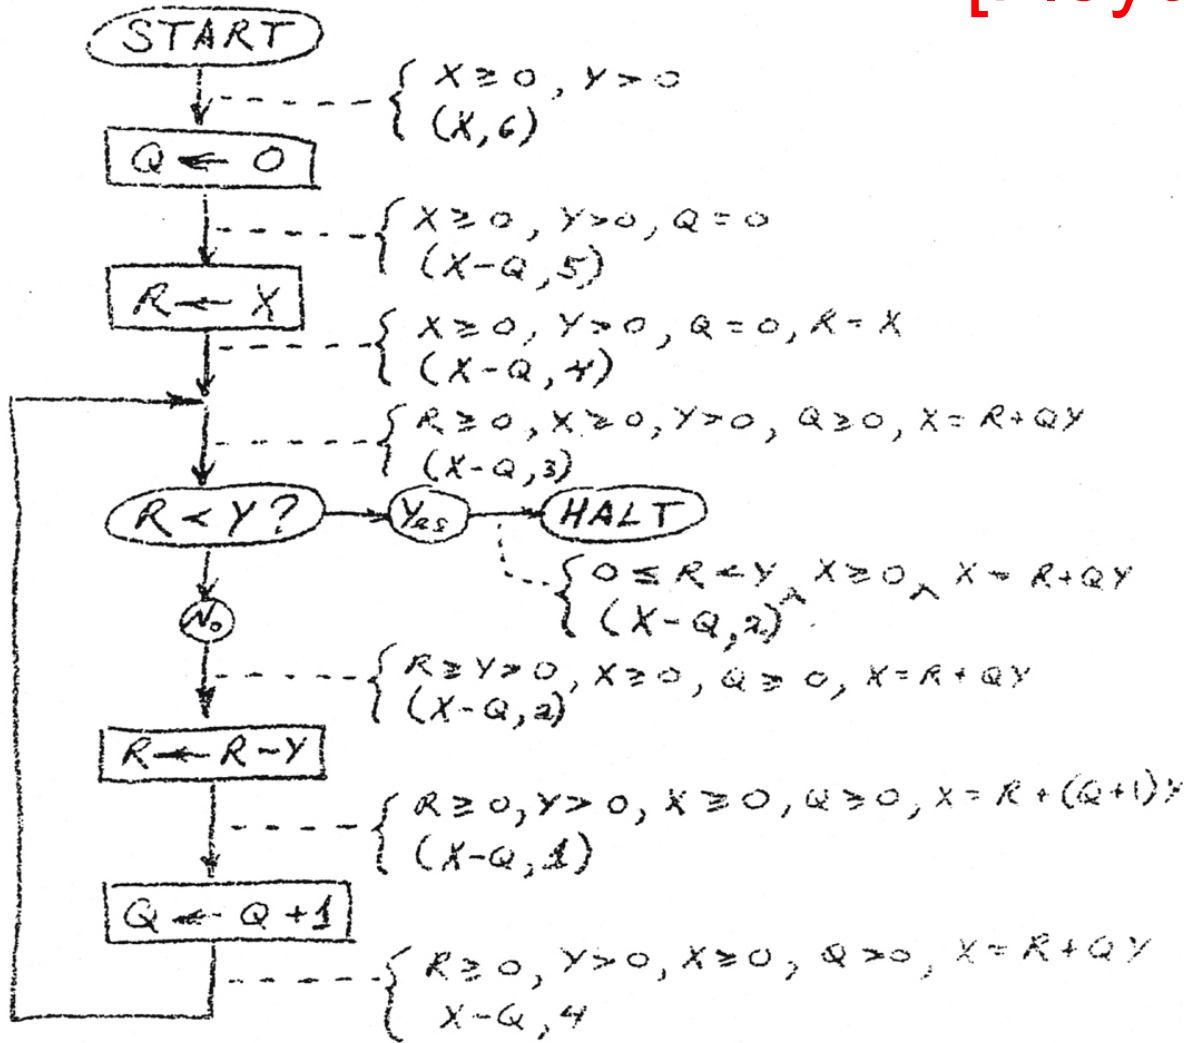 [Floy
START
X ≥ 0, Y > 0
(X, 6)
Q ← 0
X ≥ 0, Y > 0, Q = 0
(X-Q, 5)
R ← X
X ≥ 0, Y > 0, Q = 0, R = X
(X-Q, 4)
R ≥ 0, X ≥ 0, Y > 0, Q ≥ 0, X = R + QY
(X-Q, 3)
R < Y? Yes HALT
0 ≤ R < Y ∧ X ≥ 0 ∧ X = R + QY
(X-Q, 2)
No
R ≥ Y > 0, X ≥ 0, Q ≥ 0, X = R + QY
(X-Q, 2)
R ← R - Y
R ≥ 0, Y > 0, X ≥ 0, Q ≥ 0, X = R + (Q+1)Y
(X-Q, 1)
Q ← Q + 1
R ≥ 0, Y > 0, X ≥ 0, Q > 0, X = R + QY
X-Q, 4